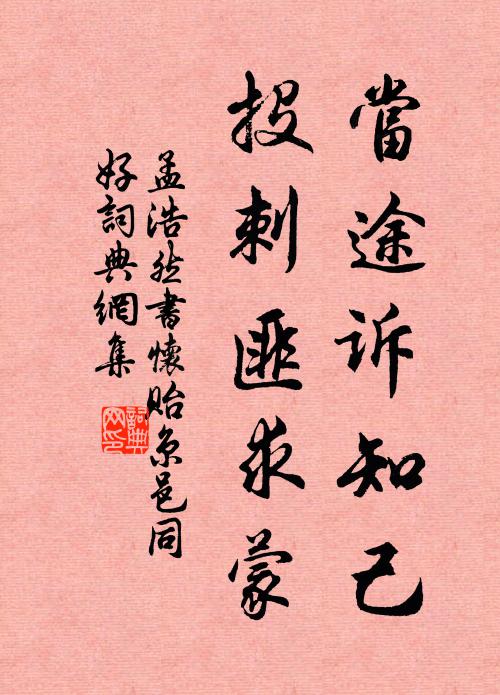 當途诉知己
投刺匪求蒙
孟浩然書懷貽京邑同
好詞典網集
詞典
网印